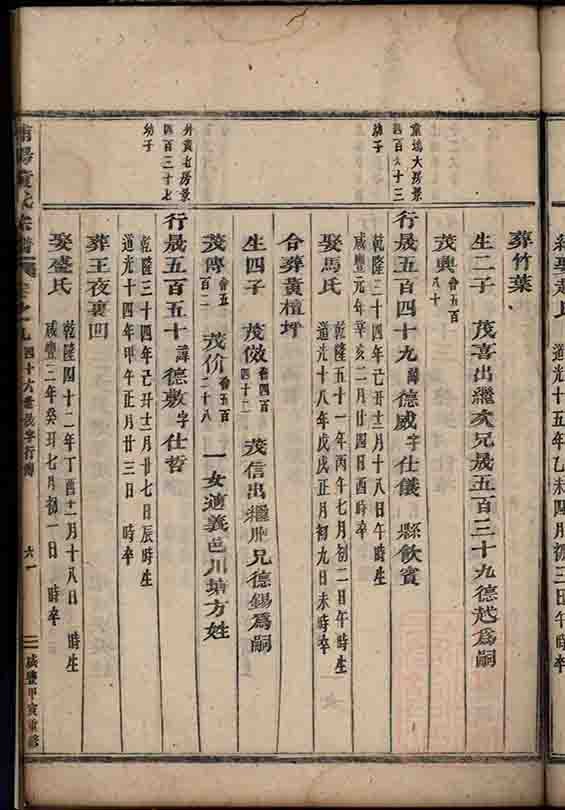 道光十五年乙未四月初三日午時
葬竹葉
生二子 茂喜出繼次兄晟五百三十九德越為嗣
茂興 睿五百八十
東塢大房景四百六十三幼子
行晟五百四十九 諱德威字仕儀 縣飲賓
乾隆三十四年己丑十二月十八日午時生
咸豐元年辛亥二月廿四日酉時卒
娶馬氏
乾隆五十一年丙午七月初二日午時生
道光十八年戊戌正月初九日未時卒
合葬黃檀坪
生四子 茂倣 睿四百四十二 茂信出繼胞兄德錫為嗣
茂傳 睿五百二 茂价 睿五百二十八 一女適義邑川塘方姓
外黃七房景四百三十七幼子
行晟五百五十 諱德敷字仕哲
乾隆三十四年己丑十二月廿七日辰時生
道光十四年甲午正月廿三日 時卒
葬王夜裏凹
娶盛氏
乾隆四十二年丁酉十二月十八日 時生
咸豐三年癸丑七月初一日 時卒
浦陽黃氏宗譜 卷之九 四十六世晟字行傳 六一 咸豐甲寅重修